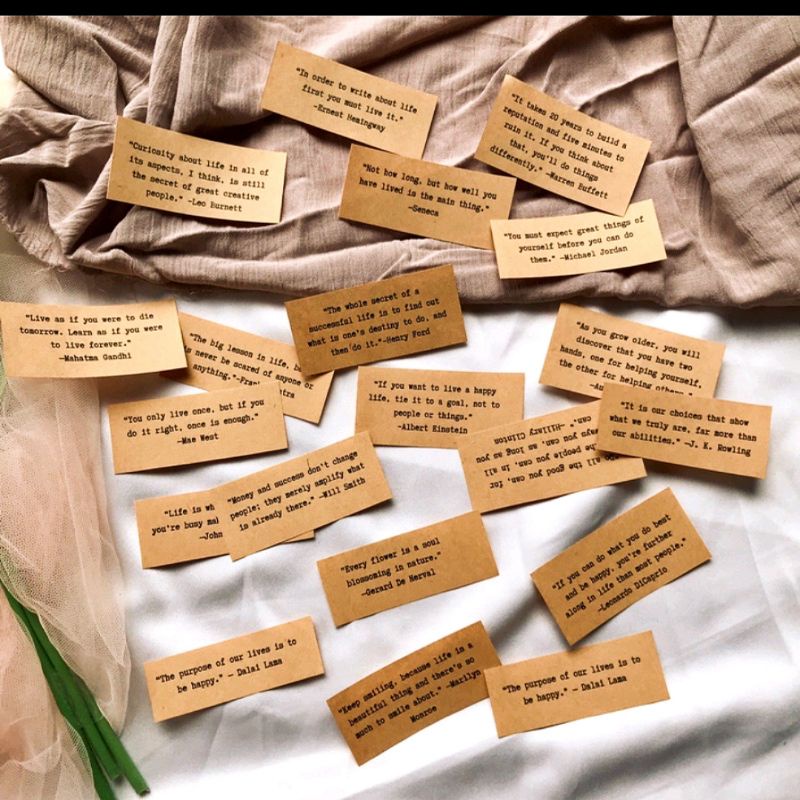 "In order to write about life
first you must live it."
-Ernest Hemingway
"It takes 20 years to build a
reputation and five minutes to
ruin it. If you think about
that, you'll do things
differently." -Warren Buffett
"Curiosity about life in all of
its aspects, I think, is still
the secret of great creative
people." -Leo Burnett
"Not how long, but how well you
have lived is the main thing."
-Seneca
"You must expect great things of
yourself before you can do
them." -Michael Jordan
"Live as if you were to die
tomorrow. Learn as if you were
to live forever."
-Mahatma Gandhi
"The big lesson in life, b
is never be scared of anyone or
anything."-Fran tra
"The whole secret of a
successful life is to find out
what is one's destiny to do, and
then do it."-Henry Ford
"As you grow older, you will
discover that you have two
hands, one for helping yourself,
the other for helping others."
-Au
"You only live once, but if you
do it right, once is enough."
-Mae West
"If you want to live a happy
life, tie it to a goal, not to
people or things."
-Albert Einstein
"It is our choices that show
what we truly are, far more than
our abilities." -J. K. Rowling
do all the good you can, for
the people you can, in all
ways you can, as long as you
can." -Hillary Clinton
"Life is wh
you're busy mak
-John
"Money and success don't change
people; they merely amplify what
is already there." -Will Smith
"Every flower is a soul
blossoming in nature."
-Gerard De Nerval
"If you can do what you do best
and be happy, you're further
along in life than most people."
-Leonardo DiCaprio
"The purpose of our lives is to
be happy." — Dalai Lama
"Keep smiling, because life is a
beautiful thing and there's so
much to smile about." -Marilyn
Monroe
"The purpose of our lives is to
be happy." — Dalai Lama